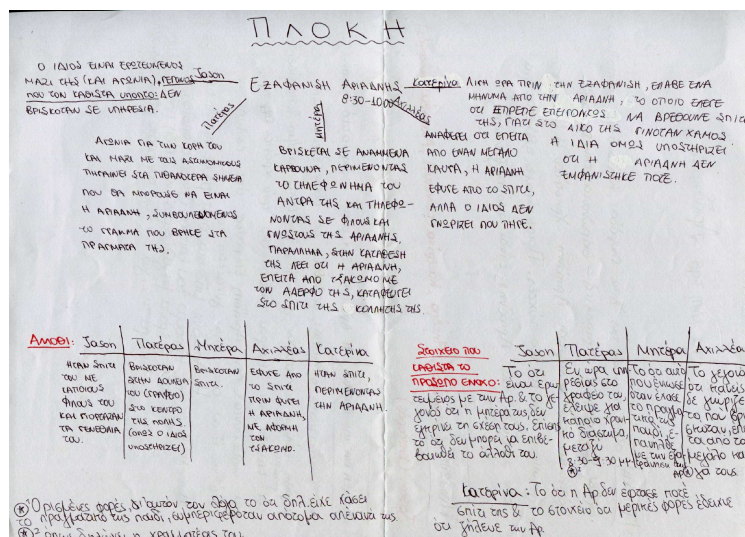 ΠΛΟΚΗ
Ο ΙΔΙΟΣ ΕΙΝΑΙ ΕΡΩΤΕΥΜΕΝΟΣ
ΜΑΖΙ ΤΗΣ (ΚΑΙ ΑΓΩΝΙΑ), Jason
ΠΟΥ ΤΟΝ ΚΑΘΙΣΤΑ ΥΠΟΠΤΟ: ΔΕΝ
ΒΡΙΣΚΟΤΑΝ ΣΕ ΥΠΗΡΕΣΙΑ.
ΕΞΑΦΑΝΙΣΗ ΑΡΙΑΔΝΗΣ
8:30-10:00
Πατέρας
ΑΓΩΝΙΑ ΓΙΑ ΤΗΝ ΚΟΡΗ ΤΟΥ
ΚΑΙ ΜΑΖΙ ΜΕ ΤΟΥΣ ΑΣΤΥΝΟΜΙΚΟΥΣ
ΠΗΓΑΙΝΕΙ ΣΤΑ ΠΙΘΑΝΟΤΕΡΑ ΣΗΜΕΙΑ
ΠΟΥ ΘΑ ΜΠΟΡΟΥΣΕ ΝΑ ΕΙΝΑΙ
Η ΑΡΙΑΔΝΗ, ΣΥΜΒΟΥΛΕΥΟΜΕΝΟΣ
ΤΟ ΓΡΑΜΜΑ ΠΟΥ ΒΡΗΚΕ ΣΤΑ
ΠΡΑΓΜΑΤΑ ΤΗΣ.
Μητέρα
ΒΡΙΣΚΕΤΑΙ ΣΕ ΑΝΑΜΜΕΝΑ
ΚΑΡΒΟΥΝΑ, ΠΕΡΙΜΕΝΟΝΤΑΣ
ΤΟ ΤΗΛΕΦΩΝΗΜΑ ΤΟΥ
ΑΝΤΡΑ ΤΗΣ ΚΑΙ ΤΗΛΕΦΩ-
ΝΟΝΤΑΣ ΣΕ ΦΙΛΟΥΣ ΚΑΙ
ΓΝΩΣΤΟΥΣ ΤΗΣ ΑΡΙΑΔΝΗΣ.
ΠΑΡΑΛΛΗΛΑ, ΣΤΗΝ ΚΑΤΑΘΕΣΗ
ΤΗΣ ΛΕΕΙ ΟΤΙ Η ΑΡΙΑΔΝΗ,
ΕΠΕΙΤΑ ΑΠΟ ΤΣΑΚΩΜΟ ΜΕ
ΤΟΝ ΑΔΕΡΦΟ ΤΗΣ, ΚΑΤΑΦΕΥΓΕΙ
ΣΤΟ ΣΠΙΤΙ ΤΗΣ ΚΟΛΛΗΤΗΣ ΤΗΣ.
Αχιλλέας
ΑΝΑΦΕΡΕΙ ΟΤΙ ΕΠΕΙΤΑ
ΑΠΟ ΕΝΑΝ ΜΕΓΑΛΟ
ΚΑΥΓΑ, Η ΑΡΙΑΔΝΗ
ΕΦΥΓΕ ΑΠΟ ΤΟ ΣΠΙΤΙ,
ΑΛΛΑ Ο ΙΔΙΟΣ ΔΕΝ
ΓΝΩΡΙΖΕΙ ΠΟΥ ΠΗΓΕ.
Κατερίνα ΛΙΓΗ ΩΡΑ ΠΡΙΝ ΤΗΝ ΕΞΑΦΑΝΙΣΗ, ΕΛΑΒΕ ΕΝΑ
ΜΗΝΥΜΑ ΑΠΟ ΤΗΝ ΑΡΙΑΔΝΗ, ΤΟ ΟΠΟΙΟ ΕΛΕΓΕ
ΟΤΙ ΕΠΡΕΠΕ ΕΠΕΙΓΟΝΤΩΣ ΝΑ ΒΡΕΘΟΥΝΕ ΣΠΙΤΙ
ΤΗΣ, ΓΙΑΤΙ ΣΤΟ ΔΙΚΟ ΤΗΣ ΓΙΝΟΤΑΝ ΧΑΜΟΣ
Η ΙΔΙΑ ΟΜΩΣ ΥΠΟΣΤΗΡΙΖΕΙ
ΟΤΙ Η ΑΡΙΑΔΝΗ ΔΕΝ
ΕΜΦΑΝΙΣΤΗΚΕ ΠΟΤΕ.
Άλλοθι: Jason Πατέρας Μητέρα Αχιλλέας Κατερίνα
ΗΤΑΝ ΣΠΙΤΙ
ΤΟΥ ΜΕ
ΚΑΠΟΙΟΥΣ
ΦΙΛΟΥΣ ΤΟΥ
ΚΑΙ ΓΙΟΡΤΑΖΑΝ
ΤΑ ΓΕΝΕΘΛΙΑ
ΤΟΥ.
ΒΡΙΣΚΟΤΑΝ
ΣΤΗΝ ΔΟΥΛΕΙΑ
ΤΟΥ (ΓΡΑΦΕΙΟ)
ΣΤΟ ΚΕΝΤΡΟ
ΤΗΣ ΠΟΛΗΣ
(ΟΠΩΣ Ο ΙΔΙΟΣ
ΥΠΟΣΤΗΡΙΖΕΙ)
ΒΡΙΣΚΟΤΑΝ
ΣΠΙΤΙ.
ΕΦΥΓΕ ΑΠΟ
ΤΟ ΣΠΙΤΙ
ΠΡΙΝ ΦΥΓΕΙ
Η ΑΡΙΑΔΝΗ,
ΜΕ ΑΦΟΡΜΗ
ΤΟΝ
ΤΣΑΚΩΜΟ.
ΗΤΑΝ ΣΠΙΤΙ,
ΠΕΡΙΜΕΝΟΝΤΑΣ
ΤΗΝ ΑΡΙΑΔΝΗ.
Στοιχείο που
καθιστά το
πρόσωπο ένοχο:
Jason Πατέρας Μητέρα Αχιλλέα
Το ότι
είναι ερω
τευμένος με την Αρ. & το γε
γονός ότι η μητέρα της δεν
έγκρινε τη σχέση τους, επίσης
το ότι δεν μπορεί να επιβε-
βαιωθεί το άλλοθι του.
Εν ώρα υπη
ρεσίας στο
γραφείο του,
έλειψε για
κάποιο χρονι
κό διάστημα,
μεταξύ
8:30-9:30 μμ
Το ότι από
Το γεγονό
Κατερίνα: Το ότι η Αρ. δεν έφτασε ποτέ
σπίτι της & το στοιχείο ότι μερικές φορές έδειχνε
ότι ζήλευε την Αρ.
Ορισμένες φορές, δι'αυτόν τον λόγο το ότι δηλ. είχε χάσει
το πραγματικό της παιδί, συμπεριφερόταν απότομα απέναντί της.
η γραμματέας του.